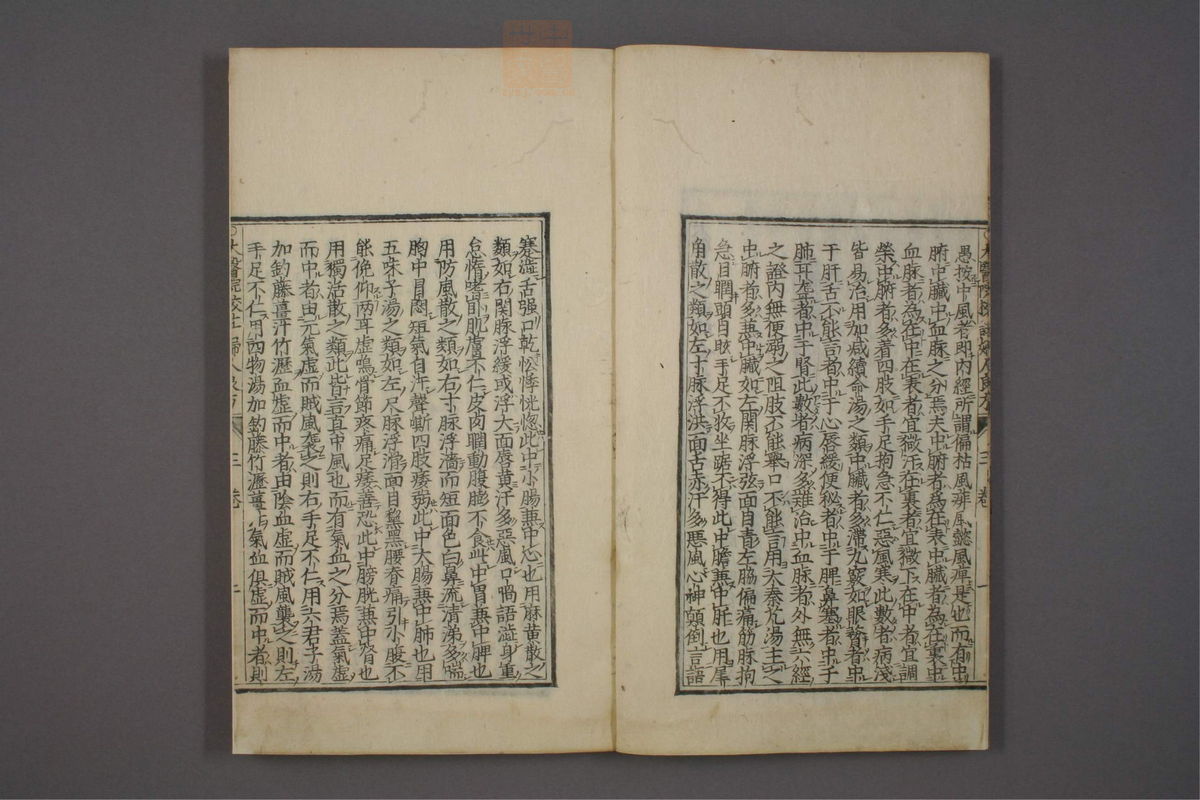 愚按中風者即內經所謂偏枯風痱風懿風痺是也而有中
腑中臟中血脉之分焉夫中腑者為在表中臟者為在裏中
血脉者為在中在表者宜微汗在裏者宜微下在中者宜調
榮中腑者多着四肢如手足拘急不仁惡風寒此數者病淺
皆易治用加減續命湯之類中臟者多滯九竅如眼瞀者中
于肝舌不能言者中于心唇緩便秘者中于脾鼻塞者中于
肺耳聾者中于腎此數者病深多難治中血脉者外無六經
之證內無便溺之阻肢不能舉口不能言用大秦艽湯主之
虫腑者多兼中臟如左關脉浮弦面目青左脇偏痛筋脉拘
急目瞤頭目眩手足不收坐踞不得此中膽兼中肝也用犀
角散之類如左寸脉浮洪面舌赤汗多惡風心神顛倒言語
蹇澁舌强口乾忪悸恍惚此中小腸兼中心也用麻黄散之
類如右關脉浮緩或浮大面唇黄汗多惡風口喎語澁身重
怠惰嗜卧肌膚不仁皮肉瞤動腹膨不食此中胃兼中脾也
用防風散之類如右寸脉浮濇而短面色白鼻流清涕多喘
胸中冒悶短氣自汗聲嘶四肢痿弱此中大腸兼中肺也用
五味子湯之類如左尺脉浮滑面目黧黑腰脊痛引小腹不
能俛仰两耳虛鳴骨節疼痛足痿善恐此中膀胱兼中腎也
用獨活散之類此皆言真中風也而有氣血之分焉蓋氣虛
而中者由元氣虛而賊風襲之則右手足不仁用六君子湯
加鈎藤薑汁竹瀝血虛而中者由陰血虛而賊風襲之則左
手足不仁用四物湯加鈎藤竹瀝薑汁氣血俱虛而中者則
太醫院校註婦人良方
三卷
二